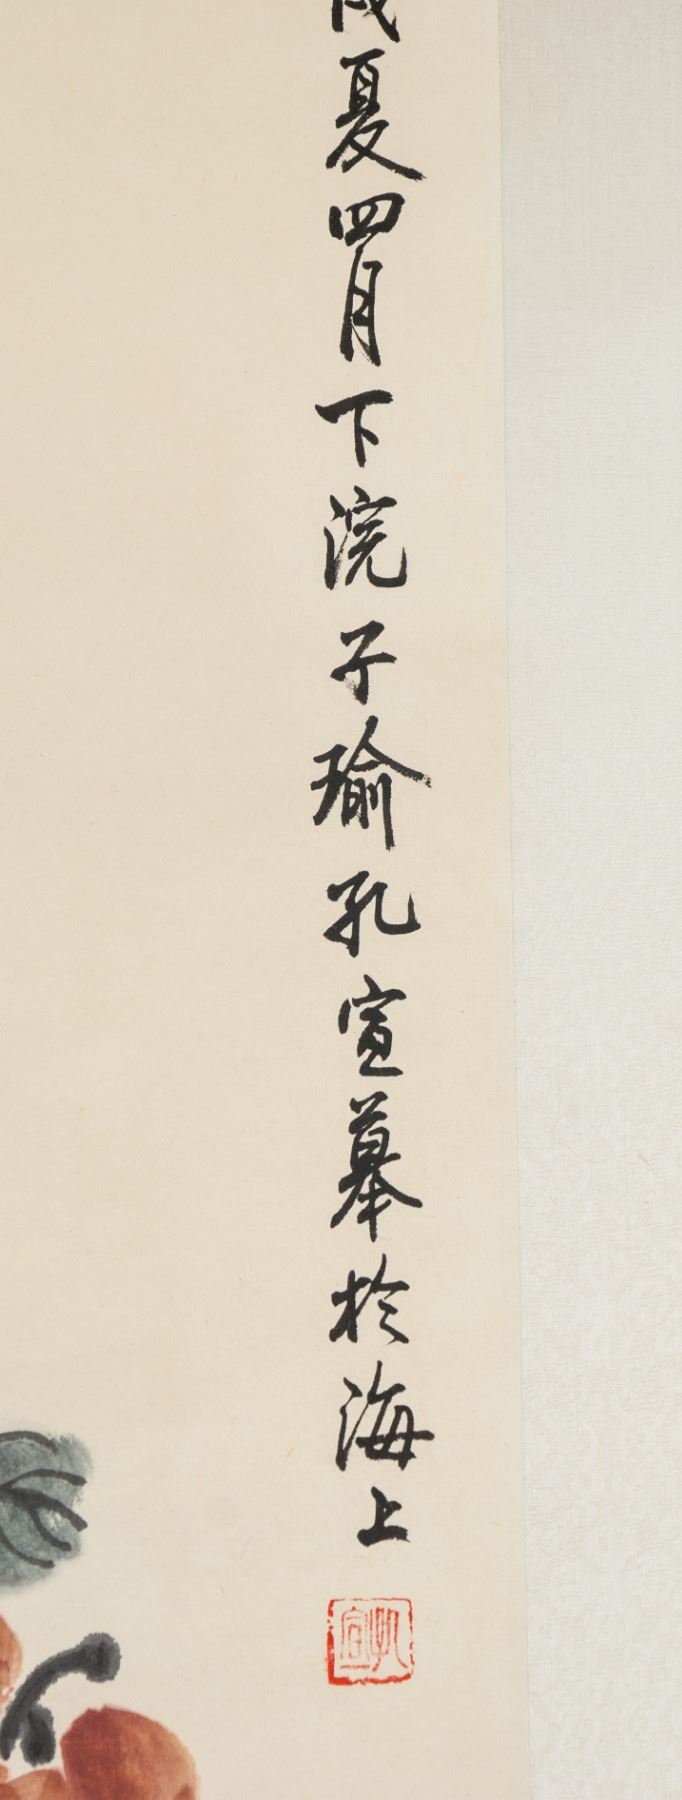 夏四月下浣子瑜孔宣摹於海上
孔宣